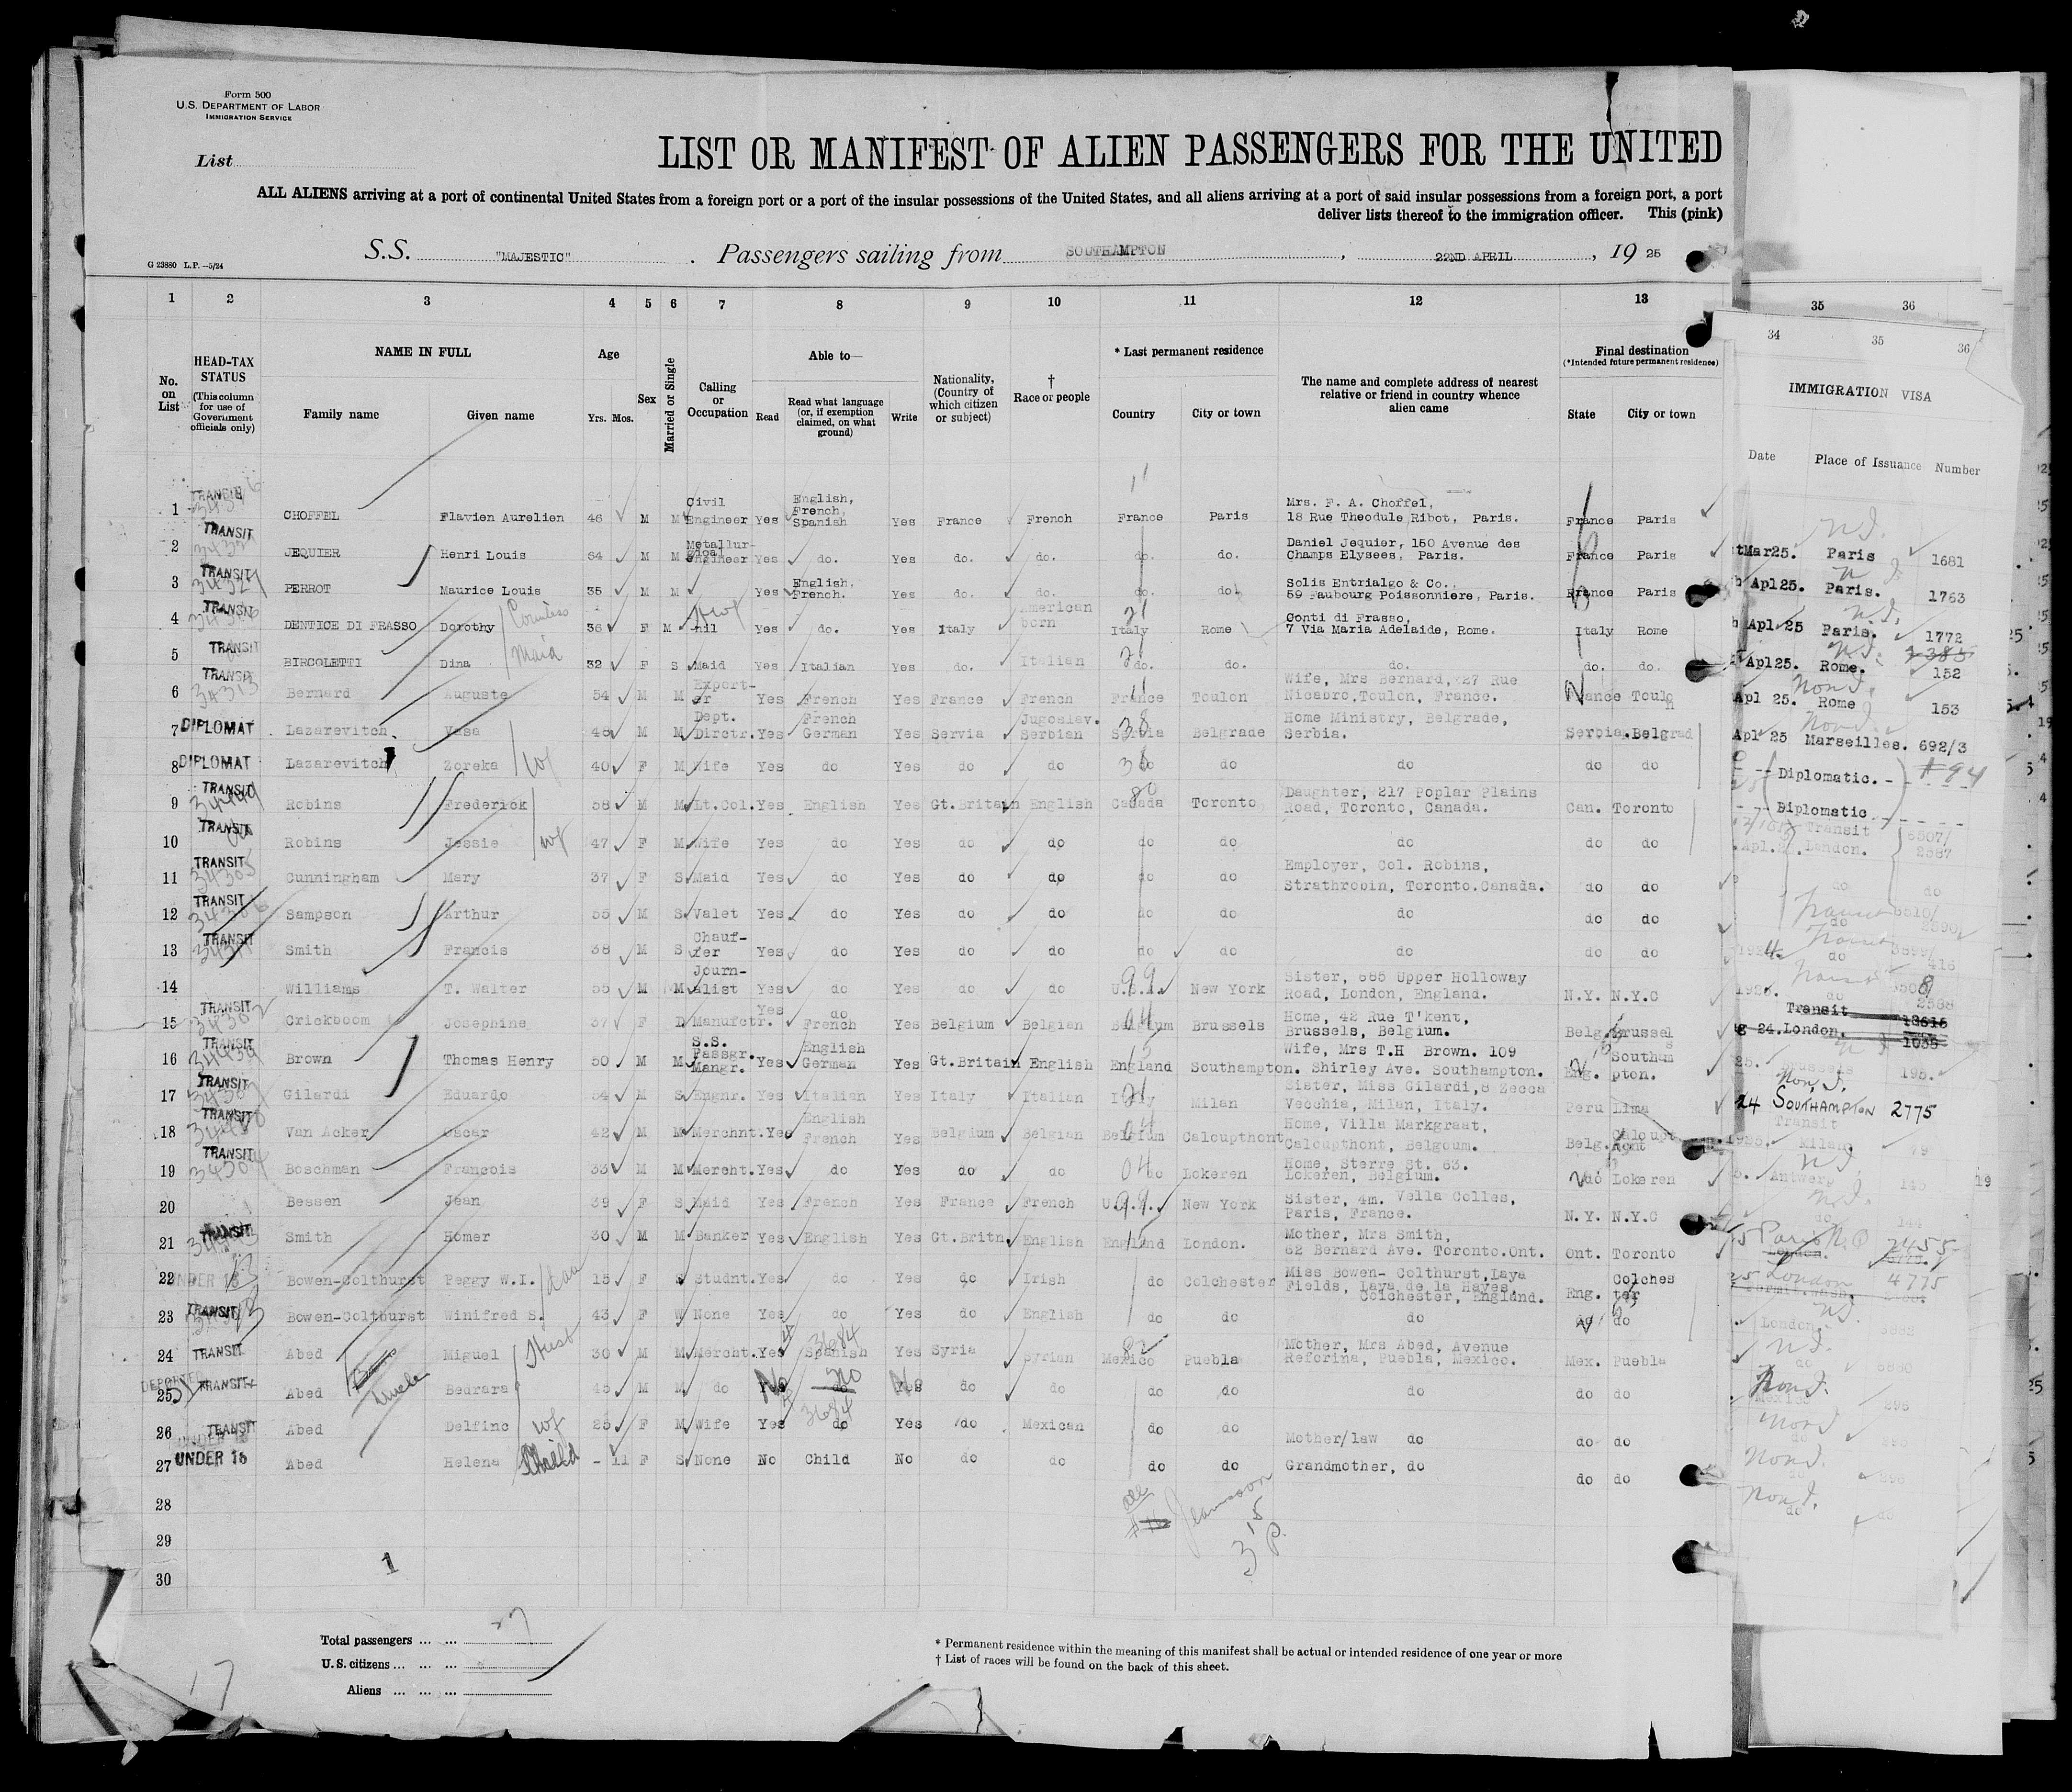 Form 500
U.S. DEPARTMENT OF LABOR
IMMIGRATION SERVICE
List
LIST OR MANIFEST OF ALIEN PASSENGERS FOR THE UNITED
ALL ALIENS arriving at a port of continental United States from a foreign port or a port of the insular possessions of the United States, and all aliens arriving at a port of said insular possessions from a foreign port, a port
deliver lists thereof to the immigration officer. This (pink)
G 23880 L.P.—5/24
S.S. "MAJESTIC" . Passengers sailing from SOUTHAMPTON , 22ND APRIL , 19 25
1 2 3 4 5 6 7 8 9 10 11 12 13
No. on List
HEAD-TAX STATUS (This column for use of Government officials only)
NAME IN FULL
Family name Given name
Age
Yrs. Mos.
Sex
Married or Single
Calling or Occupation
Able to—
Read
Read what language (or, if exemption claimed, on what ground)
Write
Nationality, (Country of which citizen or subject)
† Race or people
* Last permanent residence
Country City or town
The name and complete address of nearest relative or friend in country whence alien came
Final destination
(*Intended future permanent residence)
State City or town
35 36
34 35 36
IMMIGRATION VISA
Date Place of Issuance Number
1 TRANSIT CHOFFEL Flavien Aurelien 46 M M Civil Engineer Yes English, French, Spanish Yes France French France Paris Mrs. F. A. Choffel, 18 Rue Theodule Ribot, Paris. France Paris
2 TRANSIT JEQUIER Henri Louis 54 M M Metallurgical Engineer Yes do. Yes do. do. do. do. Daniel Jequier, 150 Avenue des Champs Elysees, Paris. France Paris
3 TRANSIT PERROT Maurice Louis 35 M M Yes English. French. Yes do. do. do. do. Solis Entrialgo & Co., 59 Faubourg Poissonniere, Paris. France Paris
4 TRANSIT DENTICE DI FRASSO Dorothy Countess 36 F M nil Yes do. Yes Italy American born Italy Rome Conti di Frasso, 7 Via Maria Adelaide, Rome. Italy Rome
5 TRANSIT BIRCOLETTI Dina maid 32 F S Maid Yes Italian Yes do. Italian do. do. do. do. do.
6 TRANSIT Bernard Auguste 54 M M Export-er Yes French Yes France French France Toulon Wife, Mrs Bernard, 27 Rue Nicabro,Toulon, France. France Toulon
7 DIPLOMAT Lazarevitch Vasa 48 M M Dept. Dirctr. Yes French German Yes Servia Jugoslav. Serbian Serbia Belgrade Home Ministry, Belgrade, Serbia. Serbia. Belgrad
8 DIPLOMAT Lazarevitch Zoreka wf 40 F M Wife Yes do Yes do do do do do do do
9 TRANSIT Robins Frederick 58 M M Lt.Col. Yes English Yes Gt.Britain English Canada Toronto Daughter, 217 Poplar Plains Road, Toronto, Canada. Can. Toronto
10 TRANSIT Robins Jessie wf 47 F M Wife Yes do Yes do do do do do do do
11 TRANSIT Cunningham Mary 37 F S Maid Yes do Yes do do do do Employer, Col. Robins, Strathrobin, Toronto.Canada. do do
12 TRANSIT Sampson Arthur 55 M S Valet Yes do Yes do do do do do do do
13 TRANSIT Smith Francis 38 M S Chauf-fer Yes do Yes do do do do do do do
14 Williams T. Walter 55 M M Journ-alist Yes do Yes do do U.S.A. New York Sister, 685 Upper Holloway Road, London, England. N.Y. N.Y.C
15 TRANSIT Crickboom Josephine 37 F D Manufctr. Yes do French Yes Belgium Belgian Belgium Brussels Home, 42 Rue T'kent, Brussels, Belgium. Belg. Brussels
16 TRANSIT Brown Thomas Henry 50 M M S.S. Passgr. Mangr. Yes English German Yes Gt.Britain English England Southampton. Wife, Mrs T.H Brown. 109 Shirley Ave. Southampton. Eng. Southampton.
17 TRANSIT Gilardi Eduardo 54 M S Engnr. Yes Italian Yes Italy Italian Italy Milan Sister, Miss Gilardi,8 Zecca Vecchia, Milan, Italy. Peru Lima
18 TRANSIT Van Acker Oscar 42 M M Merchnt. Yes English French Yes Belgium Belgian Belgium Caloupthont Home, Villa Markgraat, Caloupthont, Belgoum. Belg.
19 TRANSIT Boschman Francois 33 M M Mercht. Yes do Yes do do do Lokeren Home, Sterre St. 63. Lokeren, Belgium. do Lokeren
20 Bessen Jean 39 F S Maid Yes French Yes France French U.S.A. New York Sister, 4m. Vella Colles, Paris, France. N.Y. N.Y.C
21 TRANSIT Smith Homer 30 M M Banker Yes English Yes Gt.Britn. English England London. Mother, Mrs Smith, 62 Bernard Ave. Toronto.Ont. Ont. Toronto
22 UNDER 16 Bowen-Colthurst Peggy W.I. 15 F S Studnt. Yes do Yes do Irish do Colchester Miss Bowen- Colthurst,Laya Fields, Laya de la Hayes, Colchester, England. Eng. Colchester
23 TRANSIT Bowen-Colthurst Winifred S. 43 F W None Yes do Yes do English do do do do do
24 TRANSIT Abed Miguel 30 M M Mercht. Yes Spanish Yes Syria Syrian Mexico Puebla Mother, Mrs Abed, Avenue Reforina, Puebla, Mexico. Mex. Puebla
25 DEPORTED TRANSIT Abed Bedrara 45 M M do No do No do do do do do do do
26 TRANSIT Abed Delfino wf 25 F M Wife Yes do Yes do Mexican do do Mother/law do do do
27 UNDER 16 Abed Helena Child - 11 F S None No Child No do do do do Grandmother, do do do
28
29
30
1
Mar25. Paris 1681
Apl25. Paris. 1763
Apl 25 Paris. 1772
Apl25. Rome. 152
Apl 25. Rome 153
Apl 25 Marseilles. 692/3
Diplomatic.
Diplomatic
Transit
London. 6507/ 2587
Transit 13615
24.London. 1035
24 SOUTHAMPTON 2775
Transit
1925. Milan 79
Antwerp 145
London 4775
Total passengers ... ... 27
U.S. citizens ... ... ...
Aliens ... ... ...
17
* Permanent residence within the meaning of this manifest shall be actual or intended residence of one year or more
† List of races will be found on the back of this sheet.